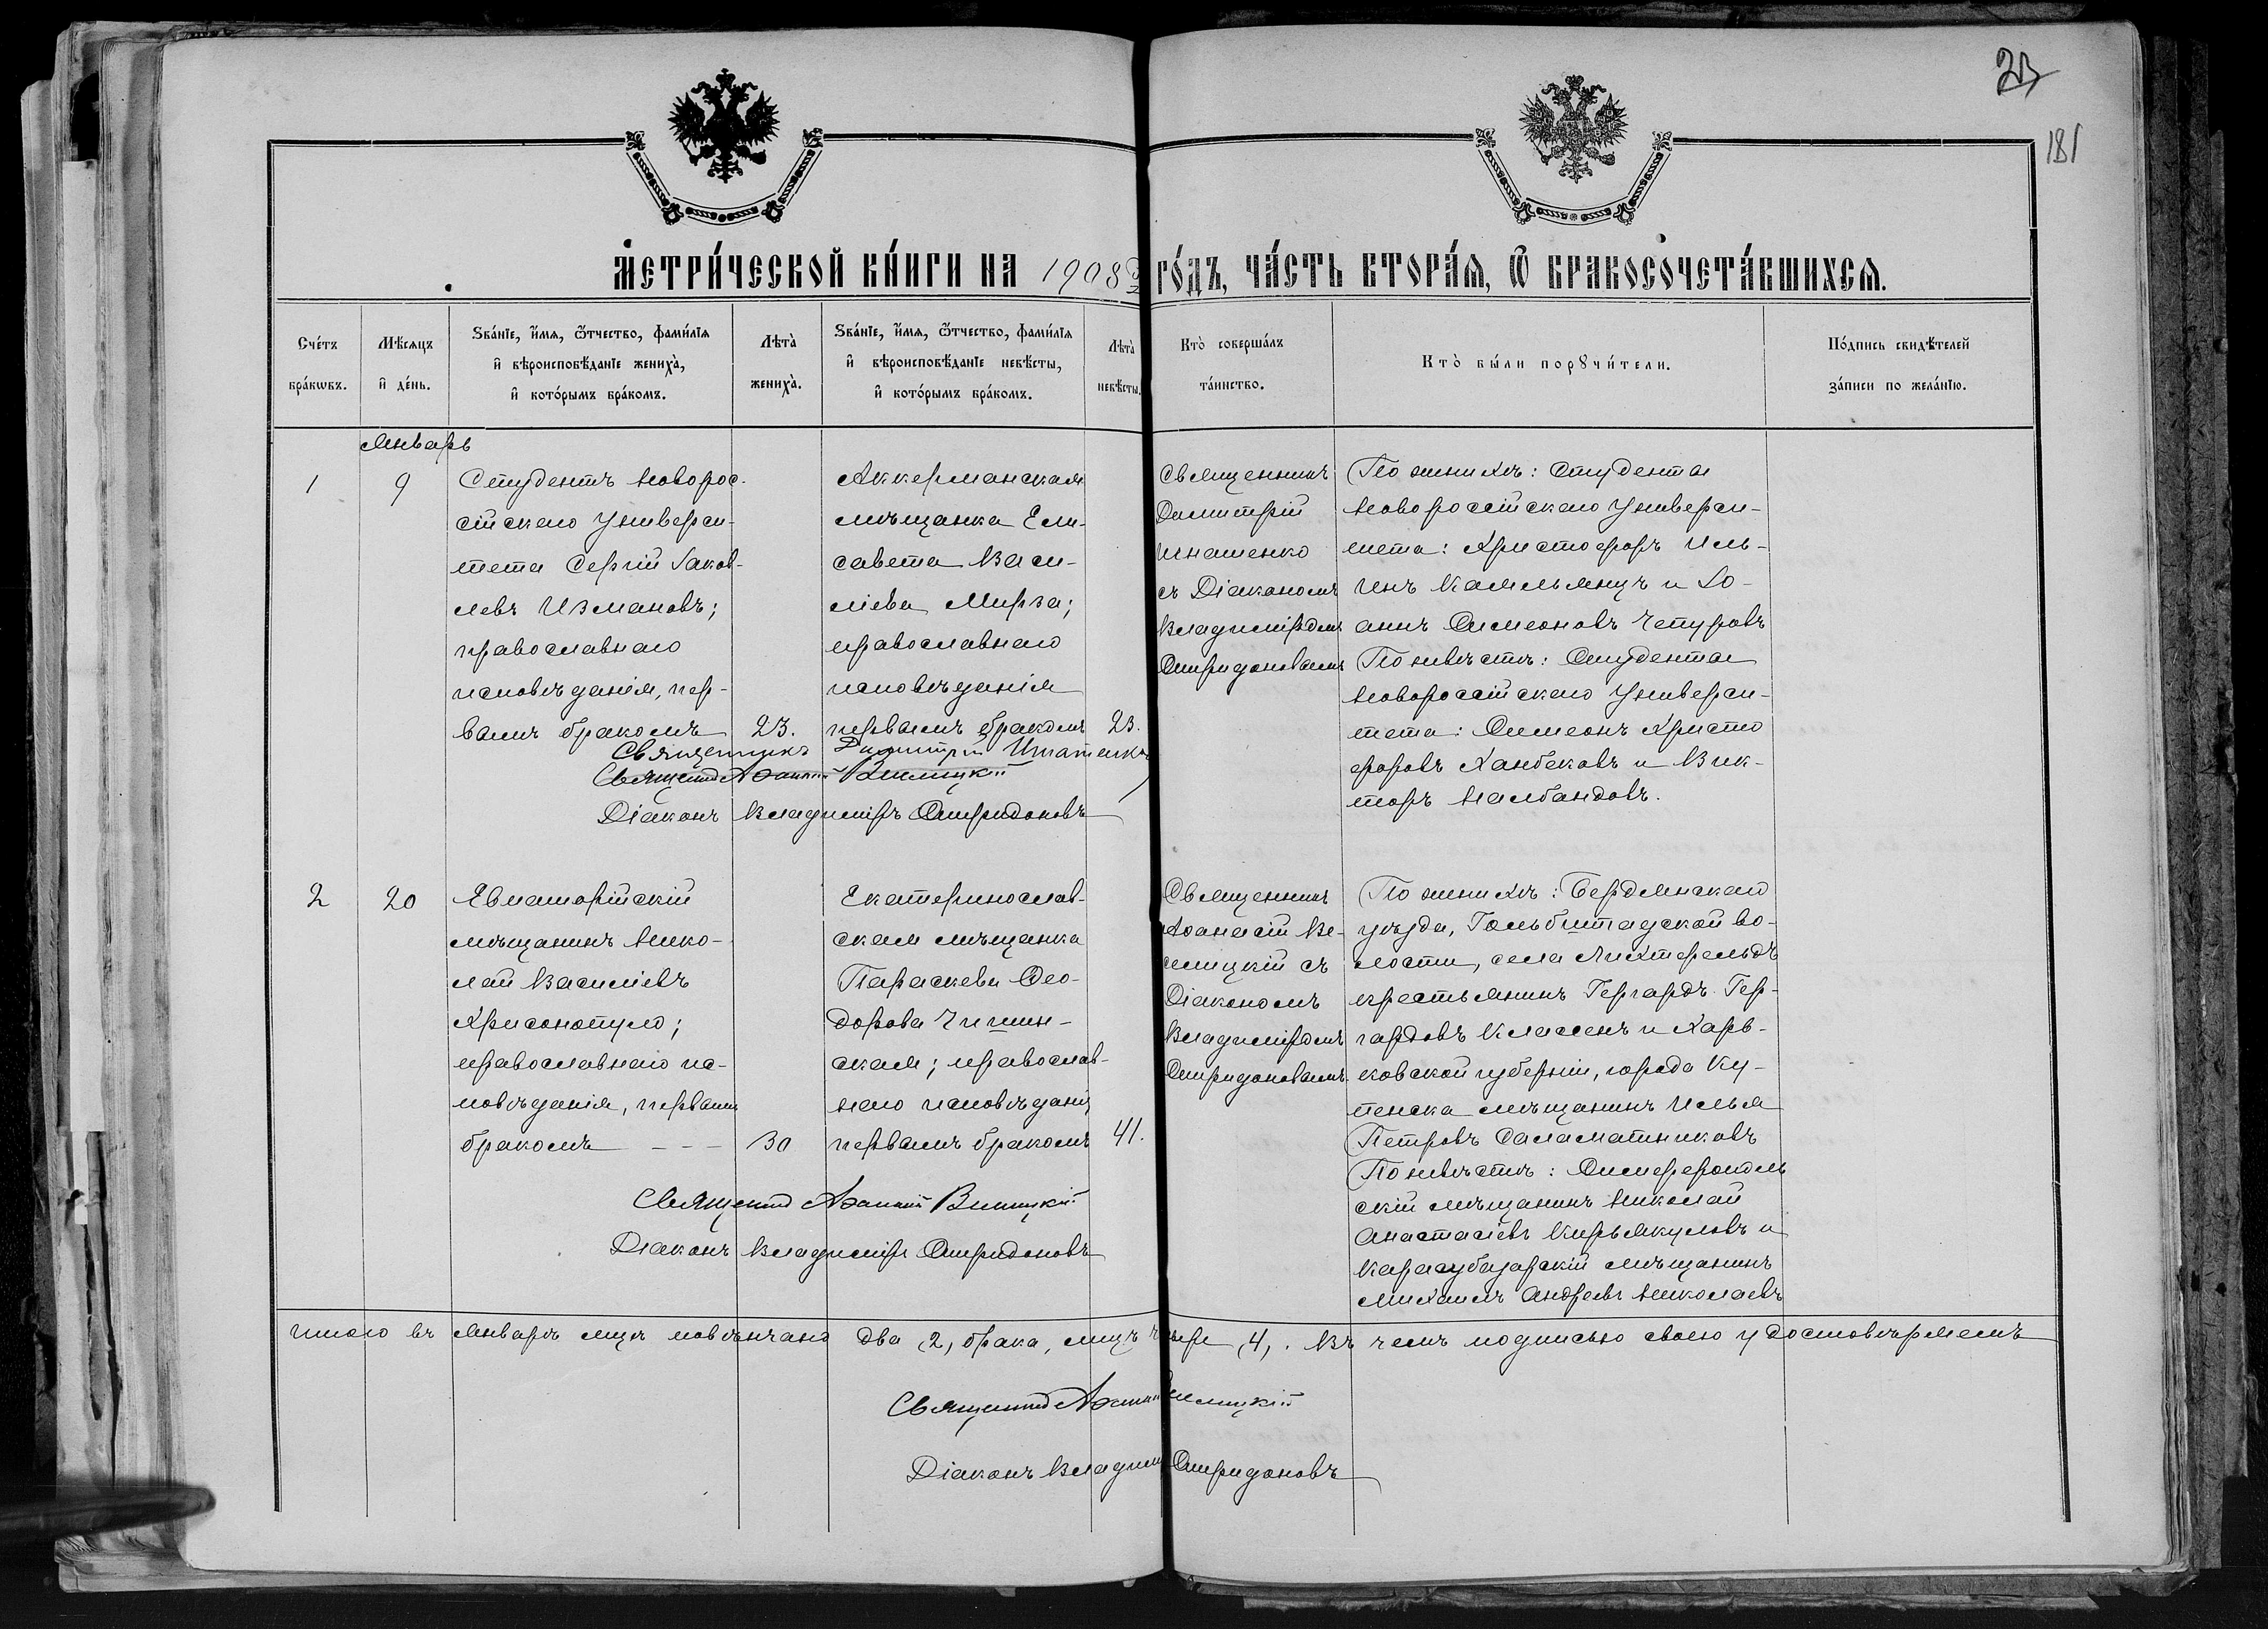 23
181
МЕТРИ́ЧЕСКОЙ КНИ́ГИ НА 1908й ГО́ДЪ, ЧА́СТЬ ВТОРА́Я, Ѿ БРАКОСОЧЕТА́ВШИХСЯ.
Сче́тъ бра́кѡвъ.
Мѣ́сяцъ и҆ де́нь.
Ѕва́нїе, и҆́мя, ѻ҆́тчество, фами́лїя и҆ вѣроисповѣ́данїе жениха̀, и҆ кото́рымъ бра́комъ.
Лѣта̀ жениха̀.
Ѕва́нїе, и҆́мя, ѻ҆́тчество, фами́лїя и҆ вѣроисповѣ́данїе невѣ́сты, и҆ кото́рымъ бра́комъ.
Лѣта̀ невѣ́сты.
Кто̀ соверша́лъ та́инство.
Кто̀ бы́ли порꙋчи́тели.
По́дпись свидѣ́телей за́писи по жела́нїю.
Январь
1
9
Студентъ Новорос-
сійскаго Универси-
тета Сергій Іаков-
левъ Измановъ;
православнаго
исповѣданія, пер-
вымъ бракомъ
23.
Аккерманская
мѣщанка Ели-
савета Васи-
ліева Мирза;
православнаго
исповѣданія
первымъ бракомъ
23.
Священникъ
Димитрій
Игнатенко
съ Діакономъ
Владиміромъ
Спиридоновымъ
По женихѣ: студенты
Новороссійскаго Универси-
тета: Христофоръ Иль-
инъ Камельянцъ и Іо-
аннъ Симеоновъ Чепуровъ
По невѣстѣ: Студенты
Новороссійскаго Универси-
тета: Симеонъ Христо
форовъ Ханбековъ и Вик-
торъ Налбандовъ.
Священникъ Димитрій Игнатенко
Священникъ Аѳанасій Велицкій
Діаконъ Владиміръ Спиридоновъ
2
20
Евпаторійскій
мѣщанинъ Нико-
лай Василіевъ
Хрисонопуло;
православнаго ис-
повѣданія, первымъ
бракомъ
30
Екатеринослав-
ская мѣщанка
Параскева Ѳео-
дорова Чигин-
ская; православ-
наго исповѣданія
первымъ бракомъ
41.
Священникъ
Аѳанасій Ве-
лицкій съ
Діакономъ
Владиміромъ
Спиридоновымъ.
По женихѣ: Бердянскаго
уѣзда, Гольбштадской во-
лости, села Лихтфельдъ
крестьянинъ Гергардъ Гер-
гардовъ Классенъ и Харь-
ковской губерніи, города Ку-
пенска мѣщанинъ Илья
Петровъ Саламатниковъ
По невѣстѣ: Симферополь
скій мѣщанинъ Николай
Анастасіевъ Кирьякуловъ и
Карасубазарскій мѣщанинъ
Михаилъ Андреевъ Николаевъ
Священникъ Аѳанасій Велицкій
Діаконъ Владиміръ Спиридоновъ
Итого въ Январѣ мцѣ повѣнчано два (2) брака, лицъ четыре (4). Въ чемъ подписью своею удостовѣряемъ
Священникъ Аѳанасій Велицкій
Діаконъ Владиміръ Спиридоновъ